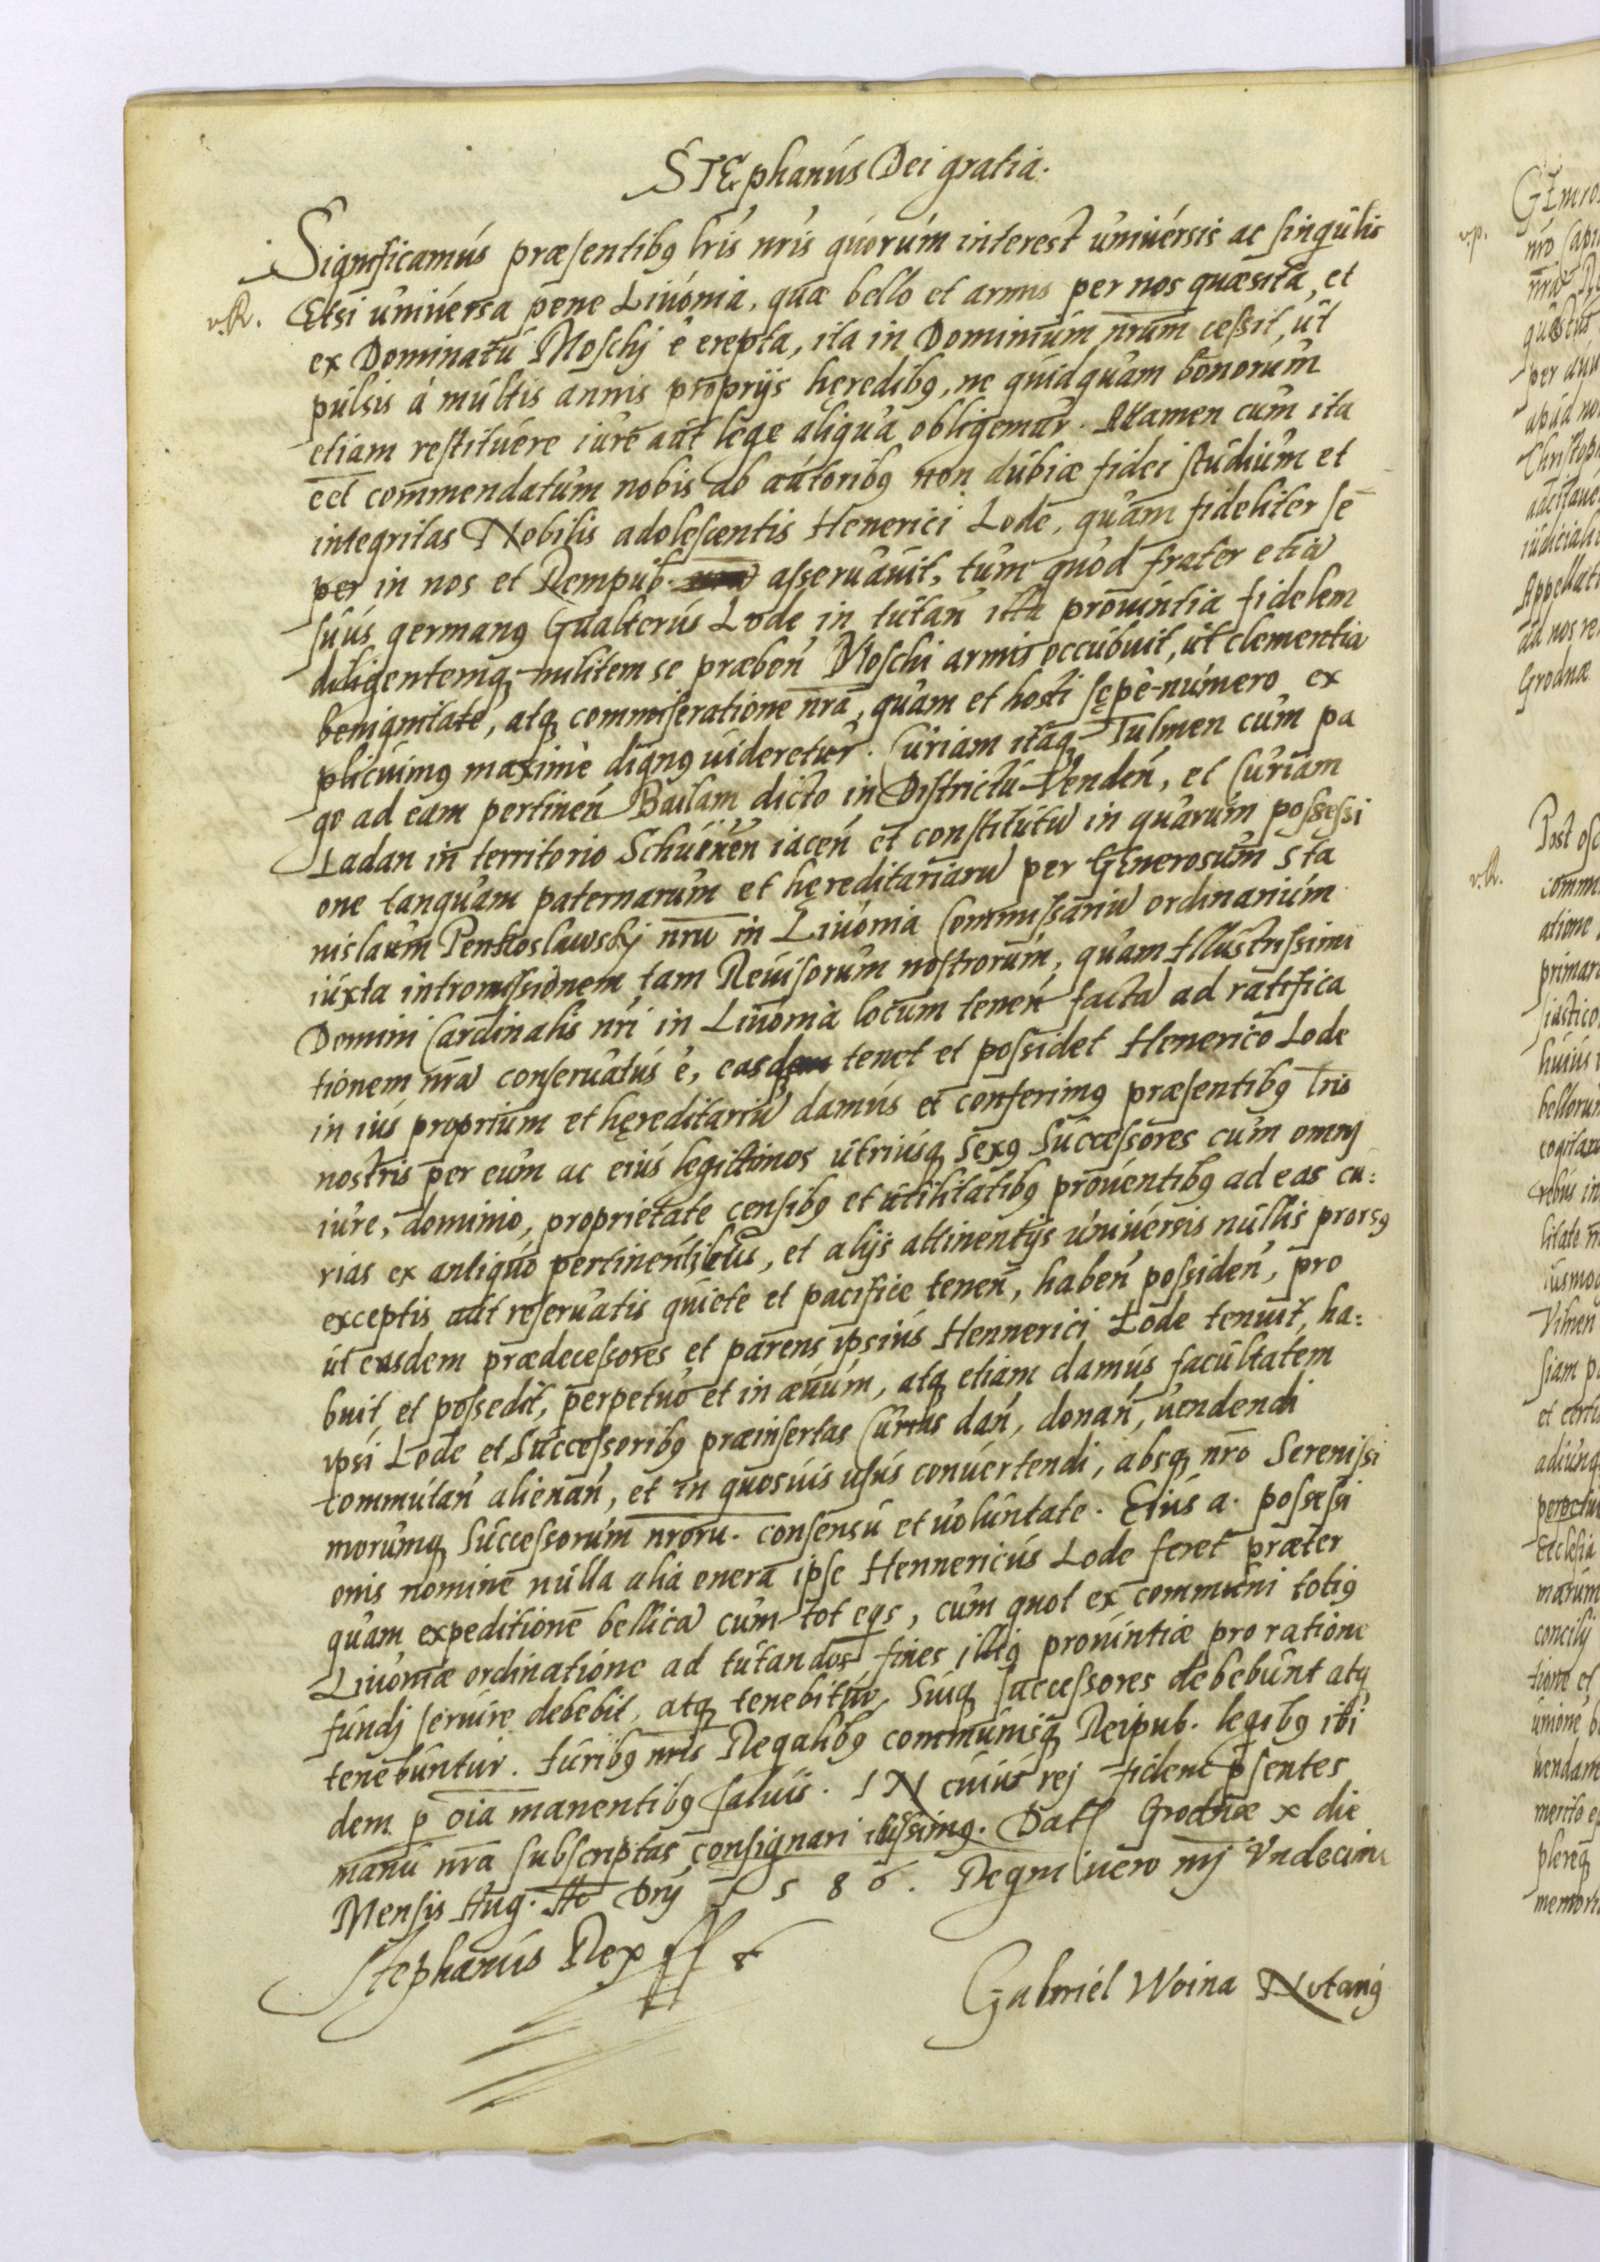 STEphanus Dei gratia.
Significamus præsentibꝫ lris nris quorum interest universis ac singulis
v.R. Etsi universa pene Livonia, quæ bello et armis per nos quæsita, et
ex Dominatu Moschj ē erepta, ita in Dominium nrum cessit, ut
pulsis à multis annis proprijs hęredibꝫ, ne quidquam bonorum
etiam restituere iure aut lege aliqua obligemur. Attamen cum ita
eēt commendatum nobis ab autoribꝫ non dubiæ fidei studium et
integritas Nobilis adolescentis Henerici Lode, quam fideliter sē
per in nos et Rempub. asseruavit, tum quod frater etiā
suus germanꝫ Gualterus Lode in tutań illa provintia fidelem
diligentemqꝫ militem se præbeń Moschi armis occubuit, ut clementia
benignitate, atqꝫ commiseratione nra, quam et hosti sępè-numero ex
plicuimꝫ maximè dignꝫ uideretur. Curiam itaqꝫ Tulmen cum pa
go ad eam pertineń Bailam dicto in Districtu Vendeń, et Curiam
Ladan in territorio Schuienen iaceń et constitutā in quarum possessi
one tanquam paternarum et hęreditariarū per Generosum Sta
nislaum Penkoslawskj nrū in Livonia Commissariū ordinarium
iuxta intromissionem tam Revisorum nostrorum, quam Illustrissimi
Domini Cardinalis nri in Livonia locum teneń factā ad ratifica
tionem nrā conseruatus ē, easdem tenet et possidet Henerico Lode
in ius proprium et hęreditariū damus et conferimꝫ præsentibꝫ lris
nostris per eum ac eius legittimos utriusqꝫ sexꝫ Successores cum omnj
iure, dominio, proprietate censibꝫ et utilitatibꝫ proventibꝫ ad eas cu:
rias ex antiquo pertinentibus, et alijs attinentijs universis nullis prorsꝫ
exceptis aut reseruatis quiete et pacifice teneń, habeń possideń, pro
ut easdem prædecessores et parens ipsius Hennerici Lode tenuit, ha:
buit et possedit, perpetuo et in ævum, atqꝫ etiam damus facultatem
ipsi Lode et Successoribꝫ præinsertas Curias dań, donań, vendendi
commutań alienań, et in quosvis usus convertendi, absqꝫ nro Serenissi
morumqꝫ Successorum nrorū. consensu et voluntate. Eius a. possessi
onis nomine nulla alia onera ipse Hennericus Lode feret præter
quam expeditionē bellicā cum tot eqs, cum quot ex communi totiꝫ
Livoniæ ordinatione ad tutandos fines illiꝫ provintiæ pro ratione
fundj seruire debebit, atqꝫ tenebitur, Suiqꝫ successores debebunt atqꝫ
tenebuntur. Iuribꝫ nris Regalibꝫ communisqꝫ Reipub. legibꝫ ibi
dem p oia manentibꝫ salvis. IN cuius rej fidem psentes
manu nra subscriptas consignari iussimꝫ. Dat Grodnæ x die
Mensis Aug. Aō Dnj 1586. Regni vero nrj Undecimo
Stephanus Rex
Gabriel Woina Notariꝫ